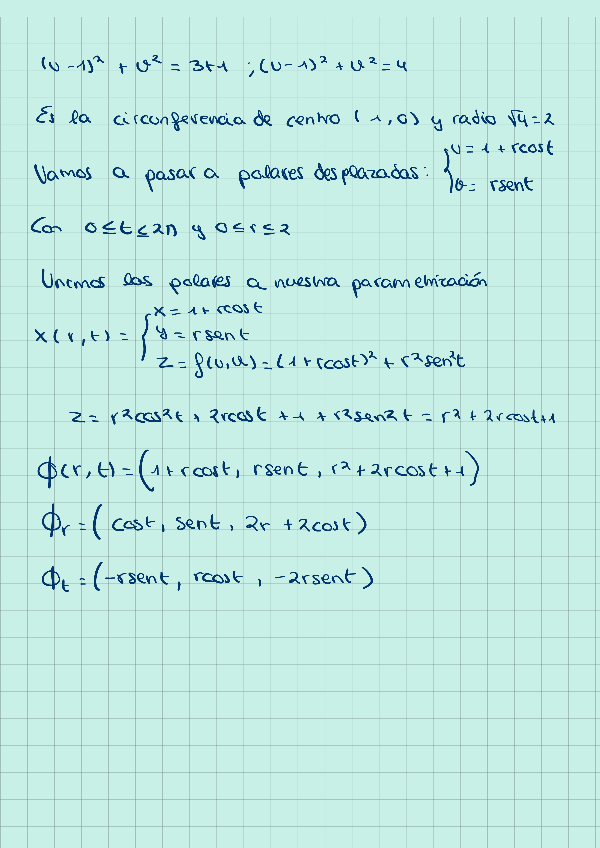 (u-1)² + v² = 3+1 ; (u-1)² + v² = 4
Es la circunferencia de centro (1,0) y radio √4 = 2
Vamos a pasar a polares desplazadas: { u = 1 + rcost
v = rsent
Con 0 ≤ t ≤ 2π y 0 ≤ r ≤ 2
Unimos las polares a nuestra parametrización
X(r,t) = { x = 1 + rcost
y = rsent
z = f(u,v) = (1+rcost)² + r²sen²t
z = r²cos²t + 2rcost + 1 + r²sen²t = r² + 2rcost+1
ϕ(r,t) = (1+rcost, rsent, r²+2rcost+1)
ϕr = (cost, sent, 2r + 2cost)
ϕt = (-rsent, rcost, -2rsent)